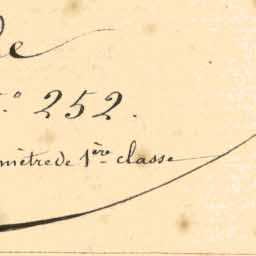 de
N.° 252.
mètre de 1ère classe